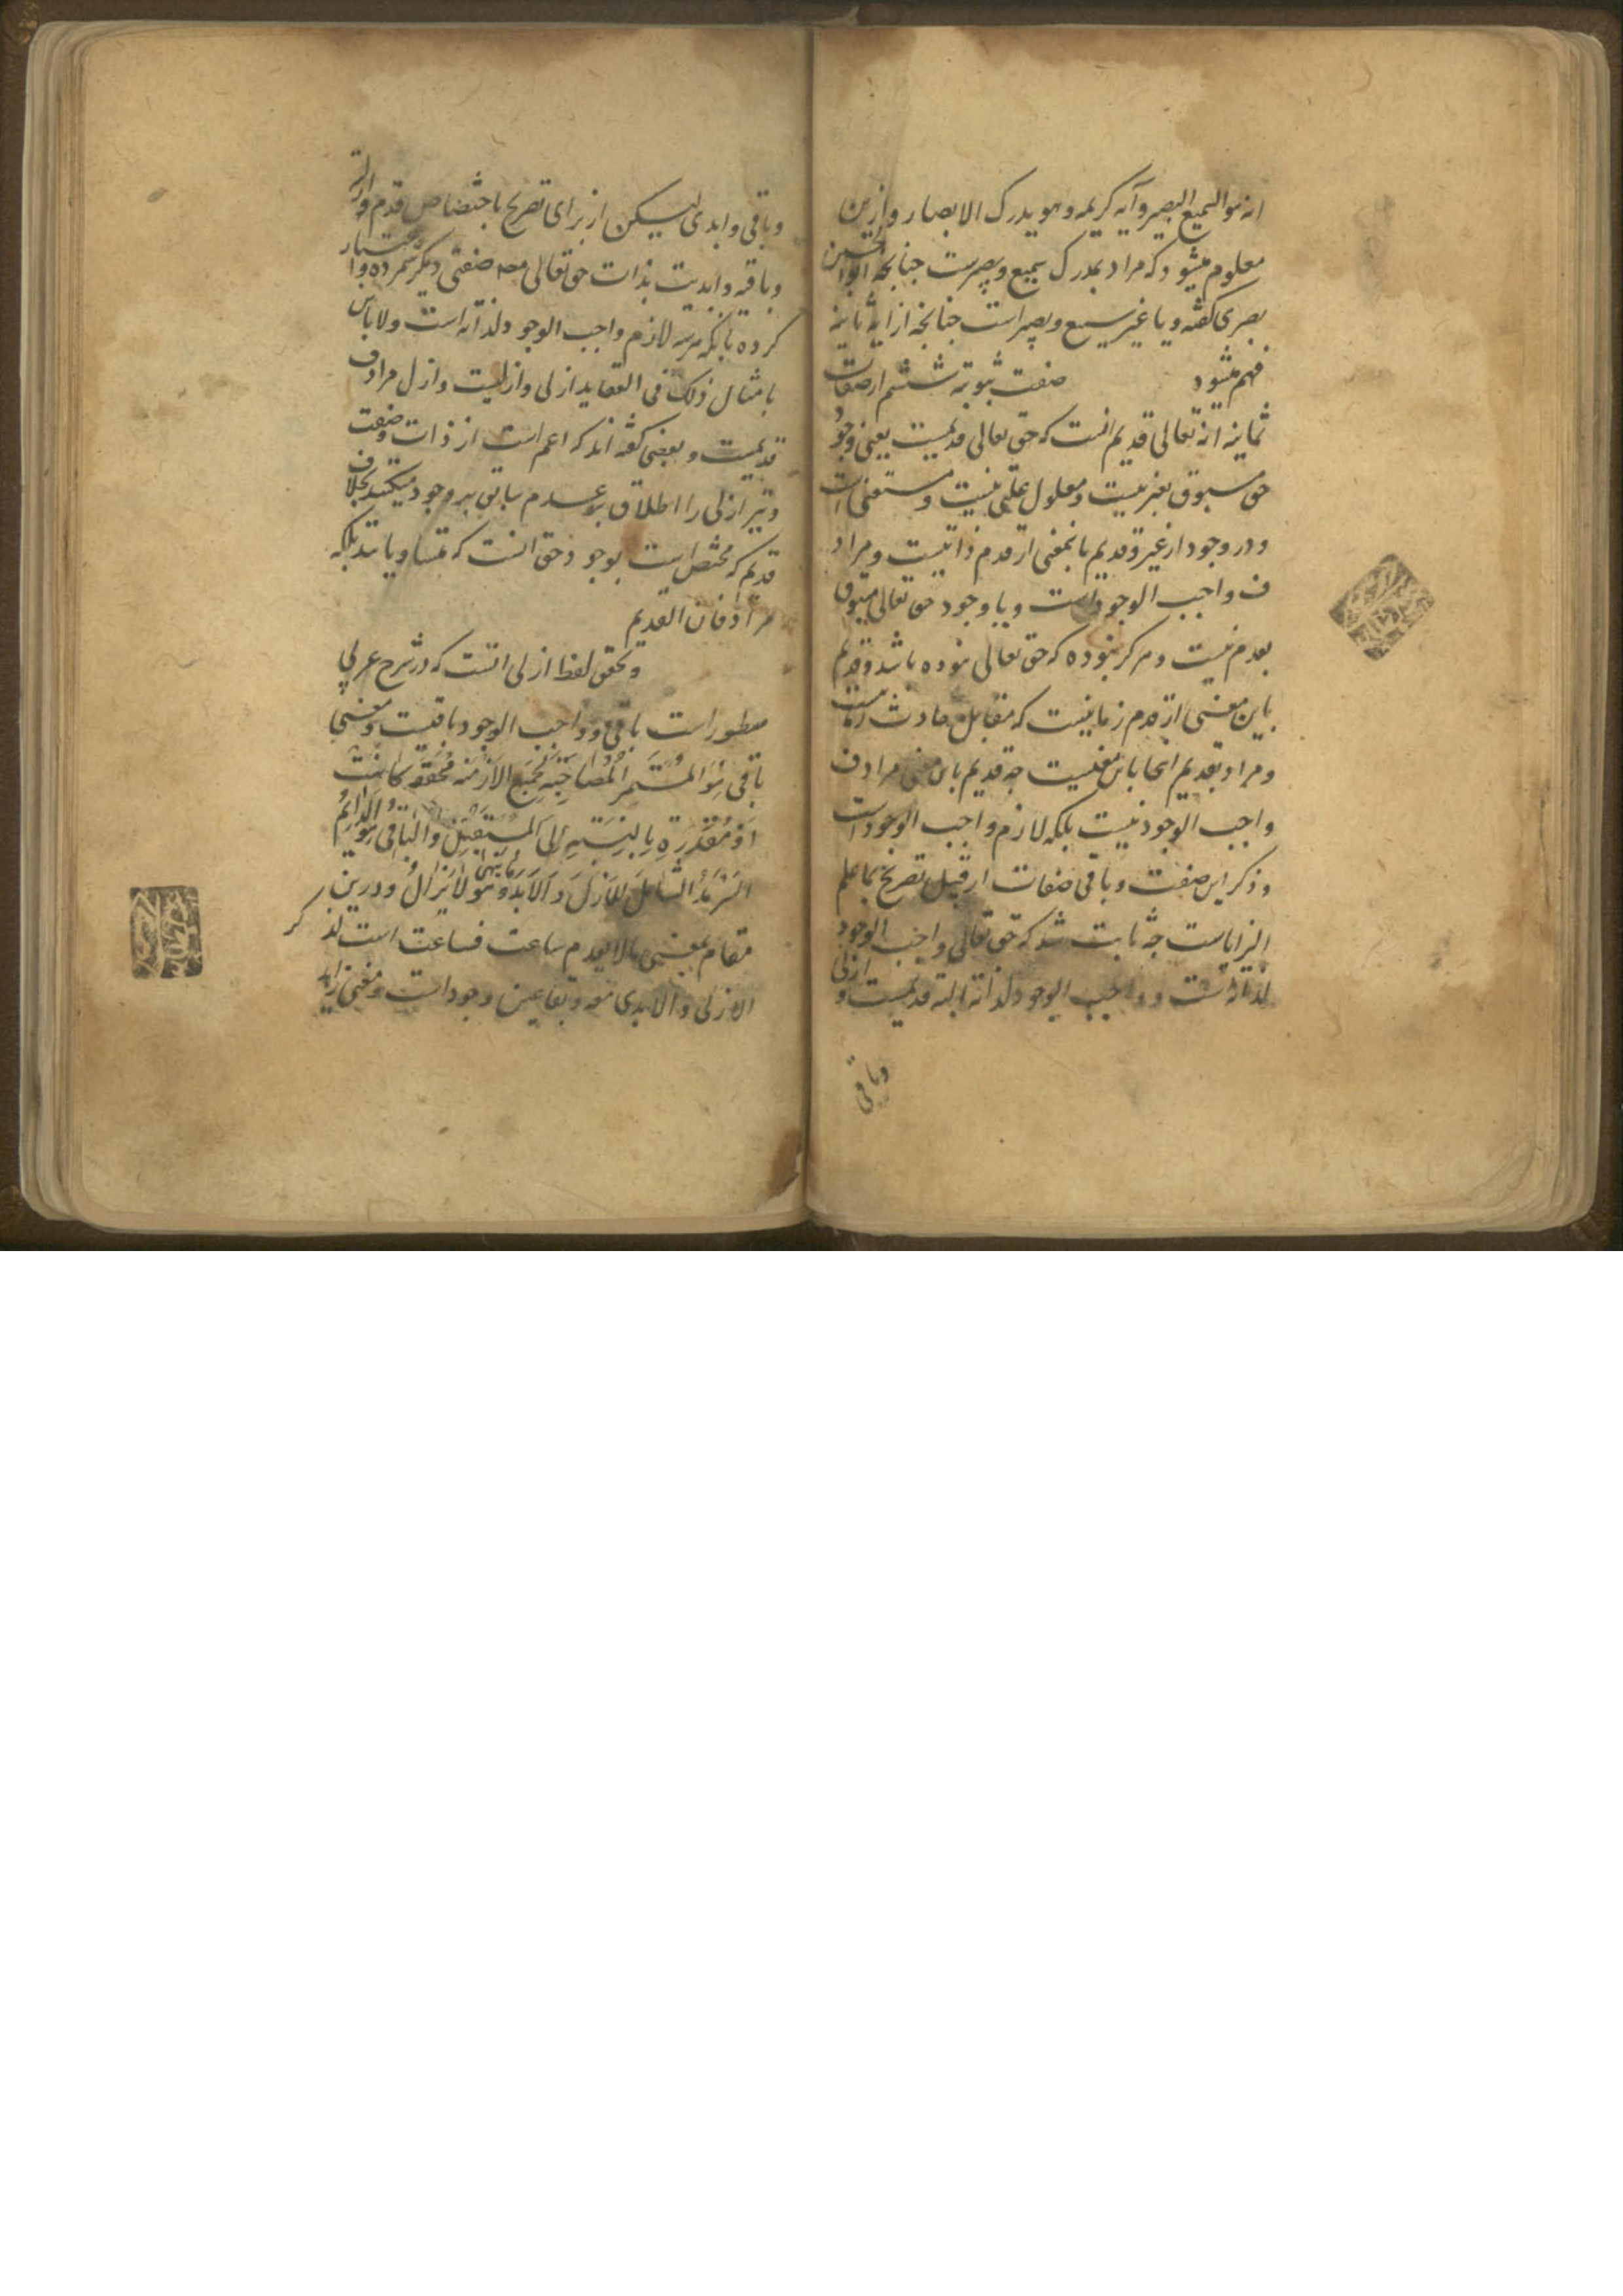 انه هو السمیع البصیر و آیه کریمه و هو یدرک الابصار و ازین
معلوم میشود که مراد بمدرک سمیع و بصیرست چنانچه ابوالحسین
بصری گفته و یا غیر سمیع و بصیر است چنانچه از آیه ثانیه
فهم میشود صفت ثبوتیه ششم از صفات
ثمانیه انه تعالی قدیم انست که حق تعالی قدیمست یعنی وجود
حق مسبوق بغیر نیست و معلول علتی نیست و مستغنی است
و در وجود از غیر و قدیم باینمعنی از قدم ذاتیست و مراد
ف واجب الوجود است و یا وجود حق تعالی مسبوق
بعدم نیست و هرگز نبوده که حق تعالی نبوده باشد و قدیم
باین معنی از قدم زمانیست که مقابل حادث زمانیست
و مراد بقدیم اینجا باین معنیست چه قدیم باین معنی مرادف
واجب الوجود نیست بلکه لازم واجب الوجود است
و ذکر این صفت و باقی صفات از قبیل تصریح بما علم
التزاماست چه ثابت شد که حق تعالی واجب الوجود
لذاته است و واجب الوجود لذاته البته قدیمست و ازلی
وباقی
و باقی و ابدی لیکن از برای تصریح باختصاص قدم و ازلیة
و باقیه و ابدیت بذات حق تعالی صفتی دیگر شمرده و اعتبار
کرده با آنکه هر سه لازم واجب الوجود لذاته است و لا باس
بامثال ذلک فی العقاید ازلی و ازلیت و ازل مرادف
قدیمست و بعضی گفته اند که اعم است از ذات و صفت
و نیز ازلی را اطلاق بر عدم سابق بر وجود میکنند بخلاف
قدیم که مختص است بوجود و حق انست که متساویانند بلکه
مرادفان القدیم
و تحقق لفظ ازلی انست که در شرح عربی
مسطور است باقی و واجب الوجود باقیست و معنی
باقی هُوَ المُستَمِرُّ المُصاحِبُ لِجَمیعِ الاَزمِنَه مُحَقَّقَةً کانَت
اَو مُقَدَّرَةً بِالنِسبَةِ اِلَی المُستَقبِل وَ الباقی هُوَ الدّایِمُ
السَّرمَدُ الشّامِلُ لِلاَزَلِ وَ الاَبَد و هُوَ لا یَزالُ و درین
مقام بمعنی مالا یعدم ساعت فساعت است لذکر
الازلی و الابدی معه و بقا عین وجود است و معنی زاید